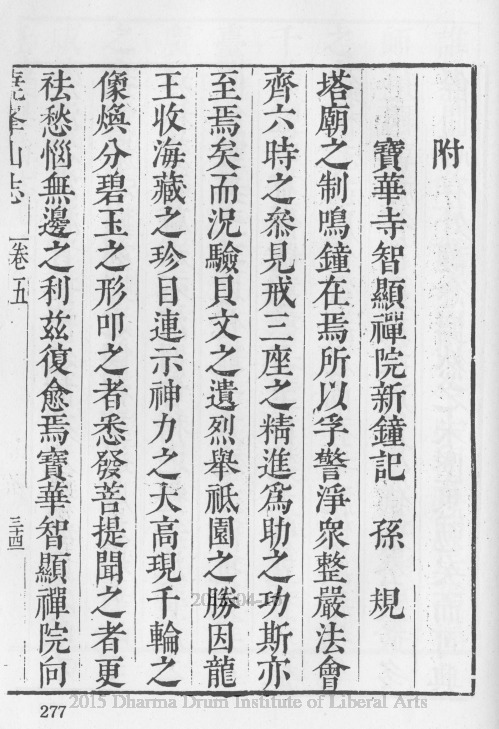 附
寶華寺智顯禪院新鐘記 孫 規
塔廟之制鳴鐘在焉所以孚警淨衆整嚴法會
齊六時之叅見戒三座之精進爲助之功斯亦
至焉矣而況驗貝文之遺烈舉祇園之勝因龍
王收海藏之珍目連示神力之大高現千輪之
像煥分碧玉之形叩之者悉發菩提聞之者更
祛愁惱無邊之利茲復愈焉寶華智顯禪院向
堯峯山志 卷五 三十四
277
2015 Dharma Drum Institute of Liberal Arts